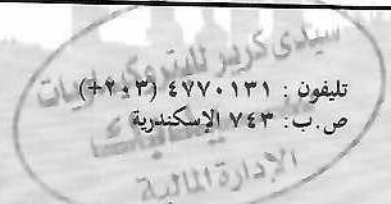 سيدى كرير للبتروكيماويات
تليفون : ٤٧٧٠١٣١ (٢٠٣+)
ص.ب: ٧٤٣ الإسكندرية
الإدارة المالية